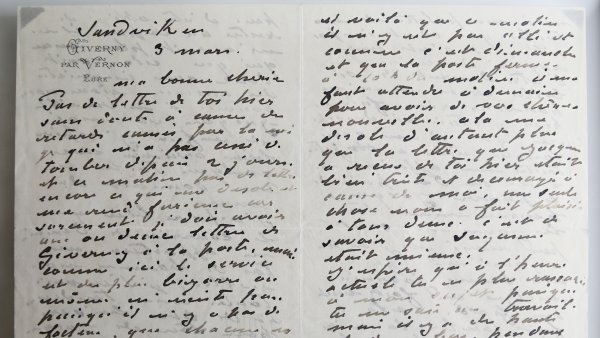 Sandviken
GIVERNY
PAR VERNON
EURE
3 mars.
ma bonne chérie
Pas de lettre de toi hier
sans doute à cause de
retards causés par la nei
ge qui n'a pas cessé de
tomber depuis 2 jours.
et ce matin pas de lettre
encore ce qui me désole et
me rend furieux car
surement je dois avoir
une ou deux lettres de
Giverny à la poste, mais
comme ici le service
est de plus bizarre ou
même n'existe pas
puisqu'il n'y a pas de
facteur, que chacun
et voilà que ce matin
il n'y est pas allé et
comme c'est dimanche
et que la poste ferme
à du matin il me
faut attendre à demain
pour avoir de vos chères
nouvelles. cela me
désole d'autant plus
que la lettre que j'ai
reçue de toi hier était
bien triste et découragée à
cause de moi, une seule
chose nous a fait plaisir
à tous deux c'est de
savoir que Suzanne
était mieux.
J'espère qu'à l'heure
actuelle tu es plus rassurée
à mon sujet puisque
tu me sais au travail.
mais il y a de hauts
pendant